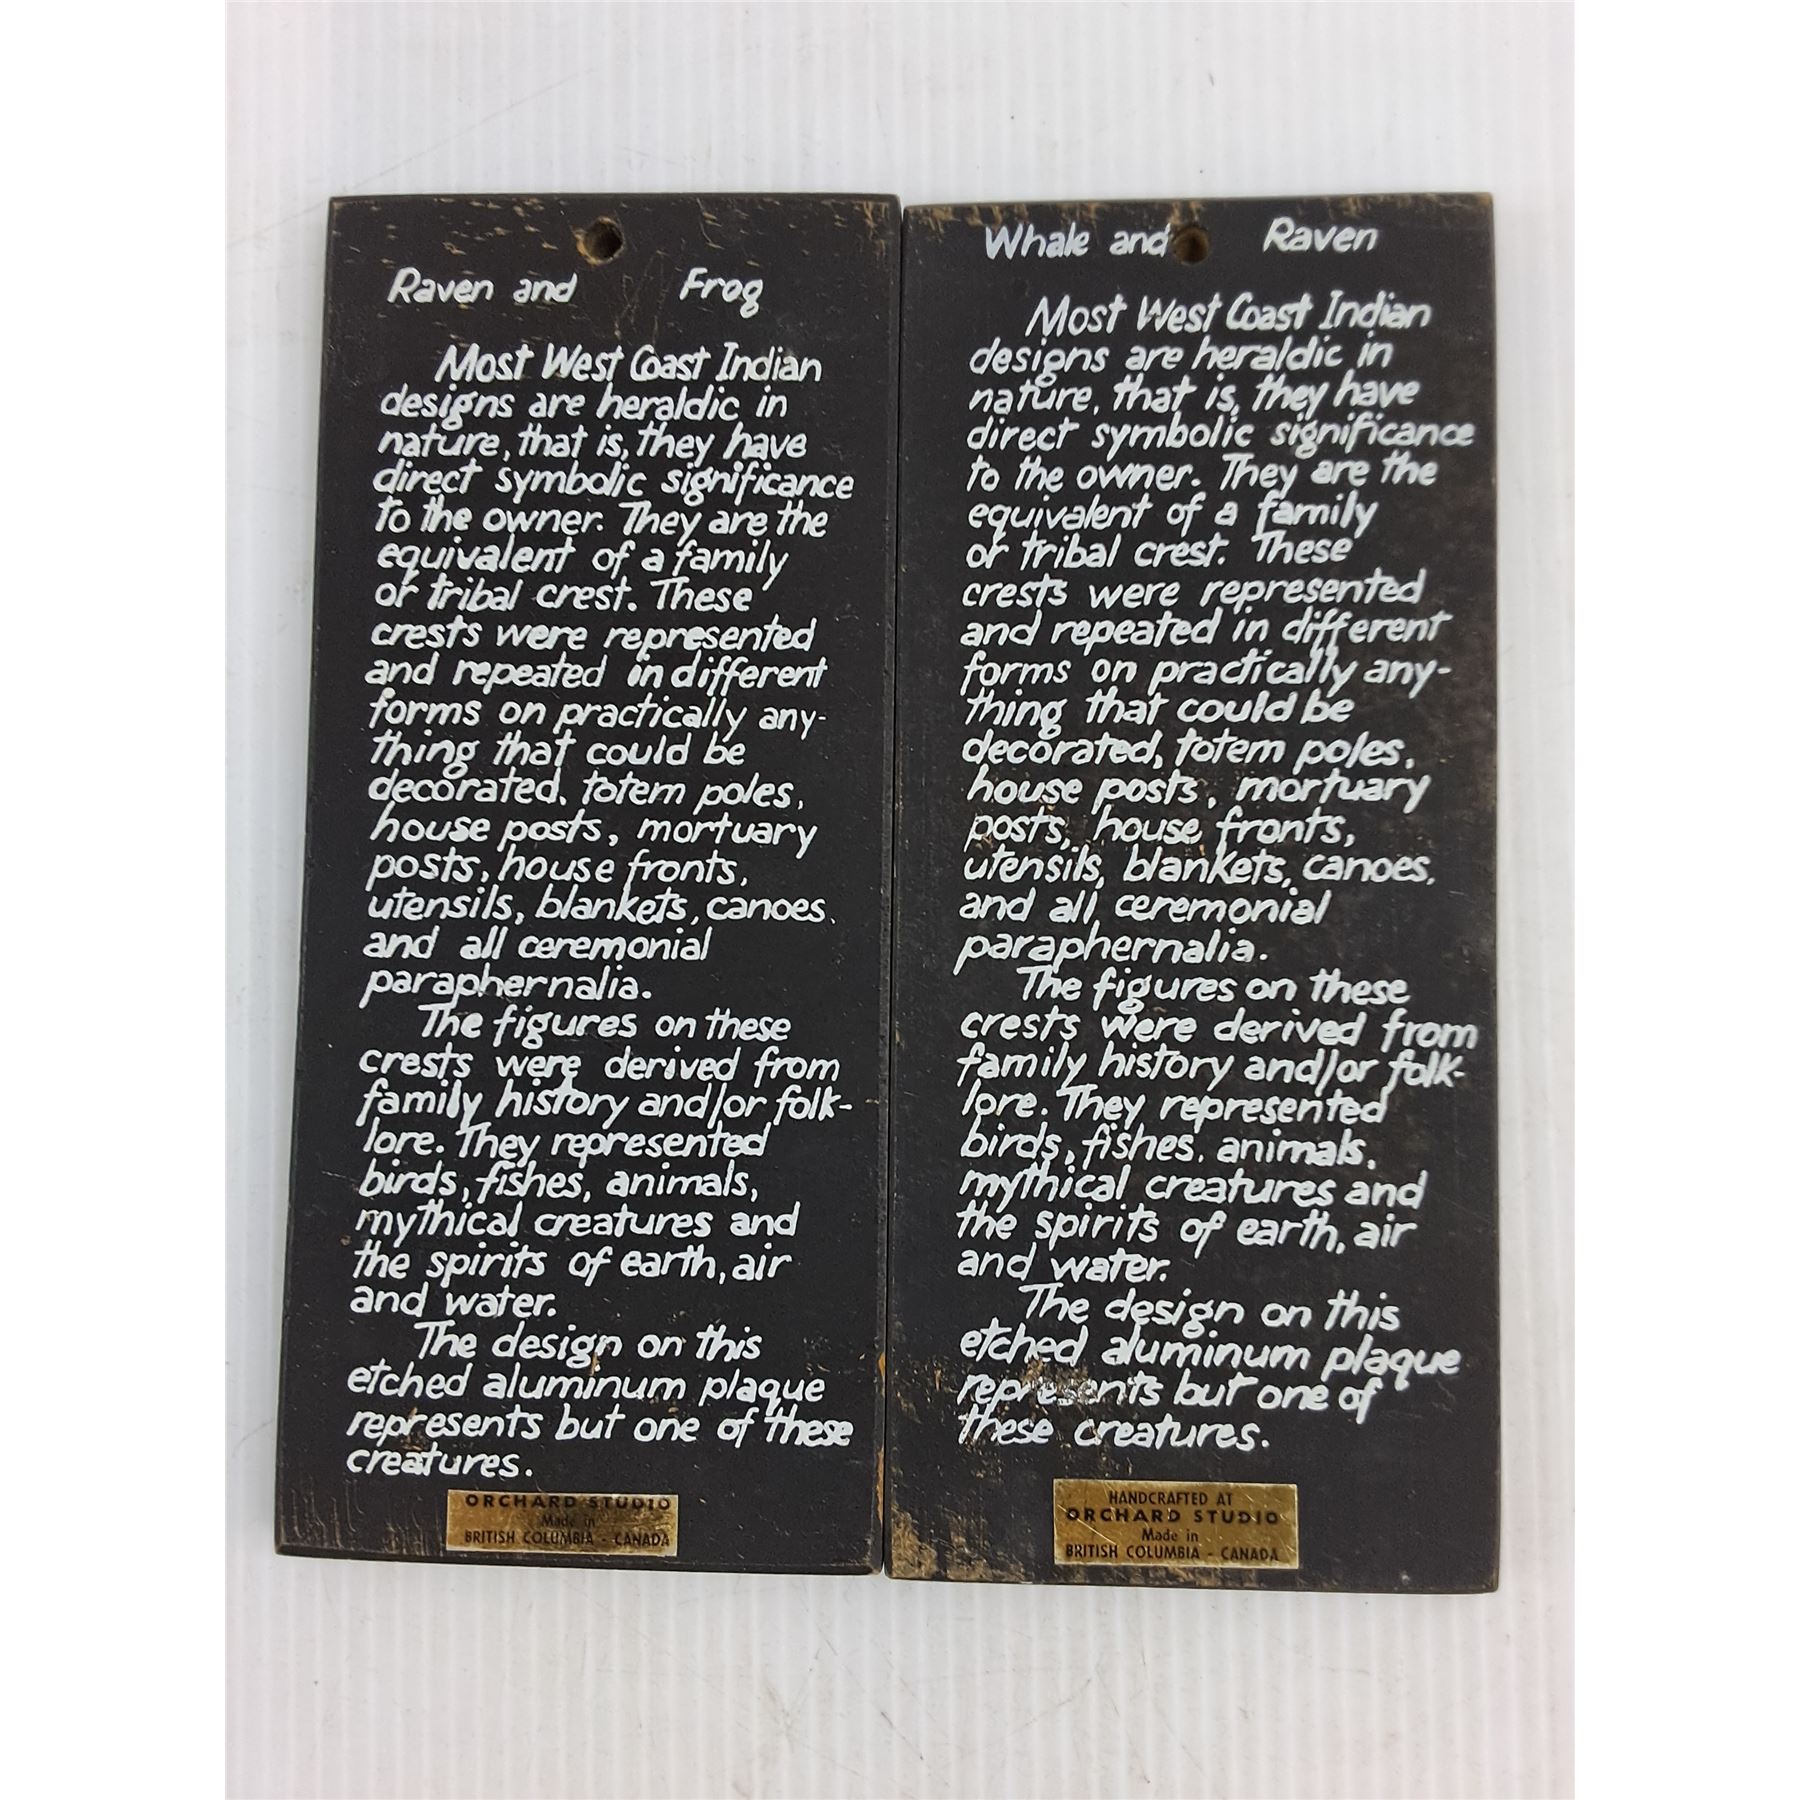 Raven and Frog
Most West Coast Indian
designs are heraldic in
nature, that is, they have
direct symbolic significance
to the owner. They are the
equivalent of a family
or tribal crest. These
crests were represented
and repeated in different
forms on practically any-
thing that could be
decorated, totem poles,
house posts, mortuary
posts, house fronts,
utensils, blankets, canoes,
and all ceremonial
paraphernalia.
The figures on these
crests were derived from
family history and/or folk-
lore. They represented
birds, fishes, animals,
mythical creatures and
the spirits of earth, air
and water.
The design on this
etched aluminum plaque
represents but one of these
creatures.
ORCHARD STUDIO
Made in
BRITISH COLUMBIA - CANADA
Whale and Raven
Most West Coast Indian
designs are heraldic in
nature, that is, they have
direct symbolic significance
to the owner. They are the
equivalent of a family
or tribal crest. These
crests were represented
and repeated in different
forms on practically any-
thing that could be
decorated, totem poles,
house posts, mortuary
posts, house fronts,
utensils, blankets, canoes,
and all ceremonial
paraphernalia.
The figures on these
crests were derived from
family history and/or folk-
lore. They represented
birds, fishes, animals,
mythical creatures and
the spirits of earth, air
and water.
The design on this
etched aluminum plaque
represents but one of
these creatures.
HANDCRAFTED AT
ORCHARD STUDIO
Made in
BRITISH COLUMBIA - CANADA